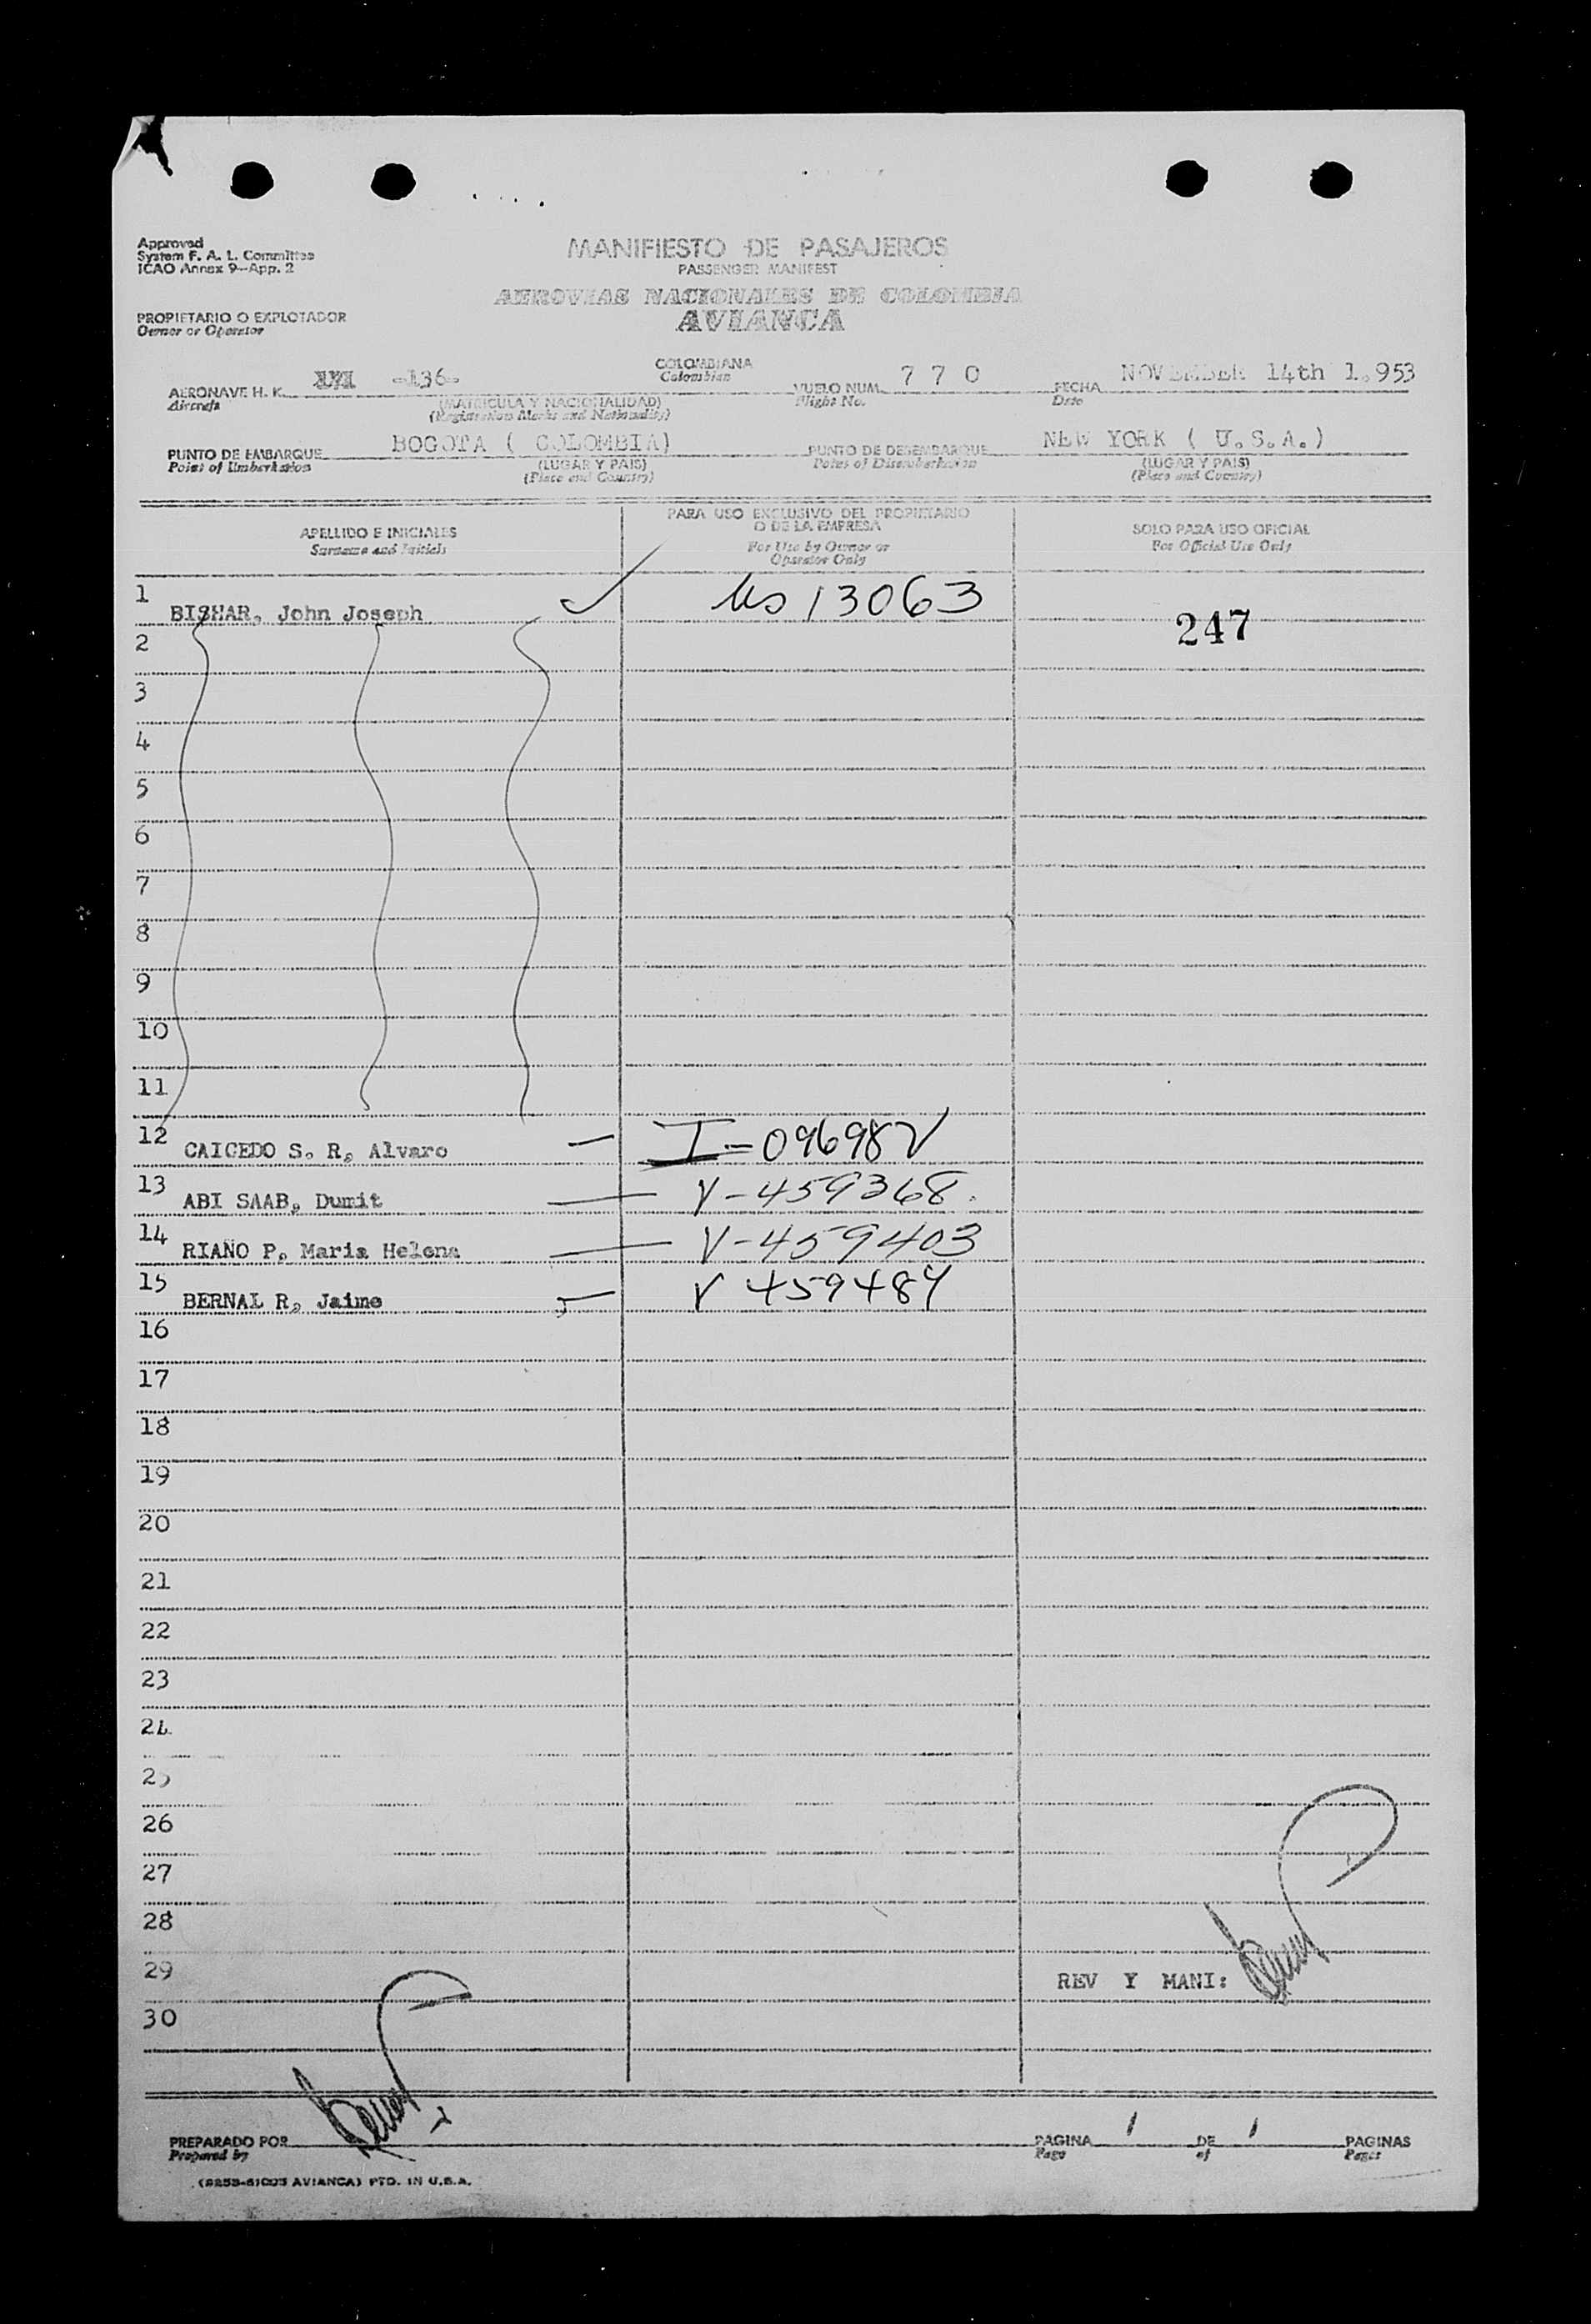 Approved
System F. A. L. Committee
ICAO Annex 9-App. 2
MANIFIESTO DE PASAJEROS
PASSENGER MANIFEST
AEROVIAS NACIONALES DE COLOMBIA
AVIANCA
PROPIETARIO O EXPLOTADOR
Owner or Operator
AERONAVE H. K. -136- COLOMBIANA VUELO NUM. 7 7 0 FECHA NOVEMBER 14th 1.953
Aircraft (MATRICULA Y NACIONALIDAD) Colombian Flight No. Date
(Registration Marks and Nationality)
PUNTO DE EMBARQUE BOGOTA ( COLOMBIA) PUNTO DE DESEMBARQUE NEW YORK ( U.S.A.)
Point of Embarkation (LUGAR Y PAIS) Point of Disembarkation (LUGAR Y PAIS)
(Place and Country) (Place and Country)
APELLIDO E INICIALES
Surname and Initials
PARA USO EXCLUSIVO DEL PROPIETARIO
O DE LA EMPRESA
For Use by Owner or
Operator Only
SOLO PARA USO OFICIAL
For Official Use Only
1 BISHAR, John Joseph US 13063
247
2
3
4
5
6
7
8
9
10
11
12 CAICEDO S. R, Alvaro I-096982
13 ABI SAAB, Dumit V-459368.
14 RIAÑO P, Maria Helena V-459403
15 BERNAL R, Jaime V 459484
16
17
18
19
20
21
22
23
24
25
26
27
28
29 REV Y MANI:
30
PREPARADO POR PAGINA 1 DE 1 PAGINAS
Prepared by Page of Pages
(8253-51003 AVIANCA) PTD. IN U.S.A.